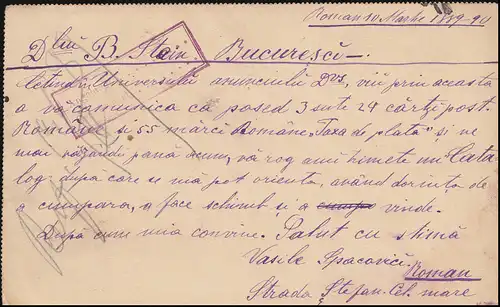 Roman 10 Martie 1889-90
Dlui B. Stain. Bucuresci.
Cetind in Universulŭ anunciulŭ Dvs, viŭ prin aceasta
a vĕ comunica ca posed 3 sute 24 cărți post.
Române si 55 mărci Române „Taxa de plata" si ne
mai văzând până acum, vă rog a'mi trimete un Cata
log după care se ma pot orienta, având dorinta de
a cumpara, a face schimb si a cumpa vinde.
Dupa cum mia convine. Salut cu stimă
Vasile Spacovici
Roman
Strada Ștefan Cel mare